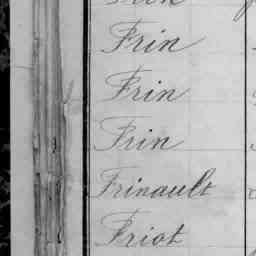 Frin
Frin
Frin
Frin
Frinault
Friot